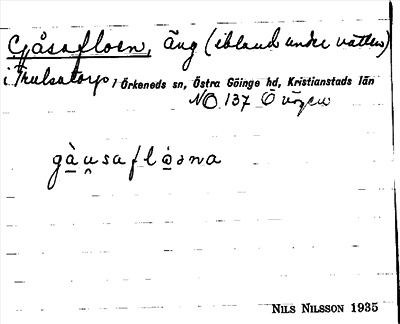 Gåsafloen, äng (ibland under vatten)
i Trulsatorp i Örkeneds sn, Östra Göinge hd, Kristianstads län
NO 137 Ö
gàu̯saflo̱əna
NILS NILSSON 1935